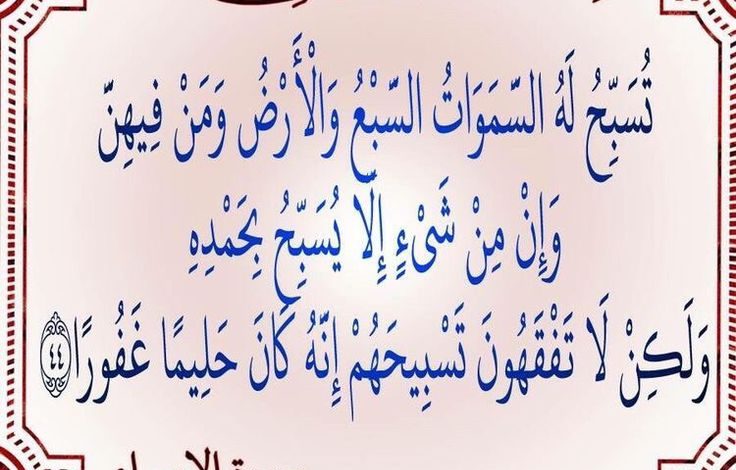 تُسَبِّحُ لَهُ السَّمَوَاتُ السَّبْعُ وَالْأَرْضُ وَمَنْ فِيهِنَّ
وَإِنْ مِنْ شَىْءٍ إِلَّا يُسَبِّحُ بِحَمْدِهِ
وَلَكِنْ لَا تَفْقَهُونَ تَسْبِيحَهُمْ إِنَّهُ كَانَ حَلِيمًا غَفُورًا ٤٤